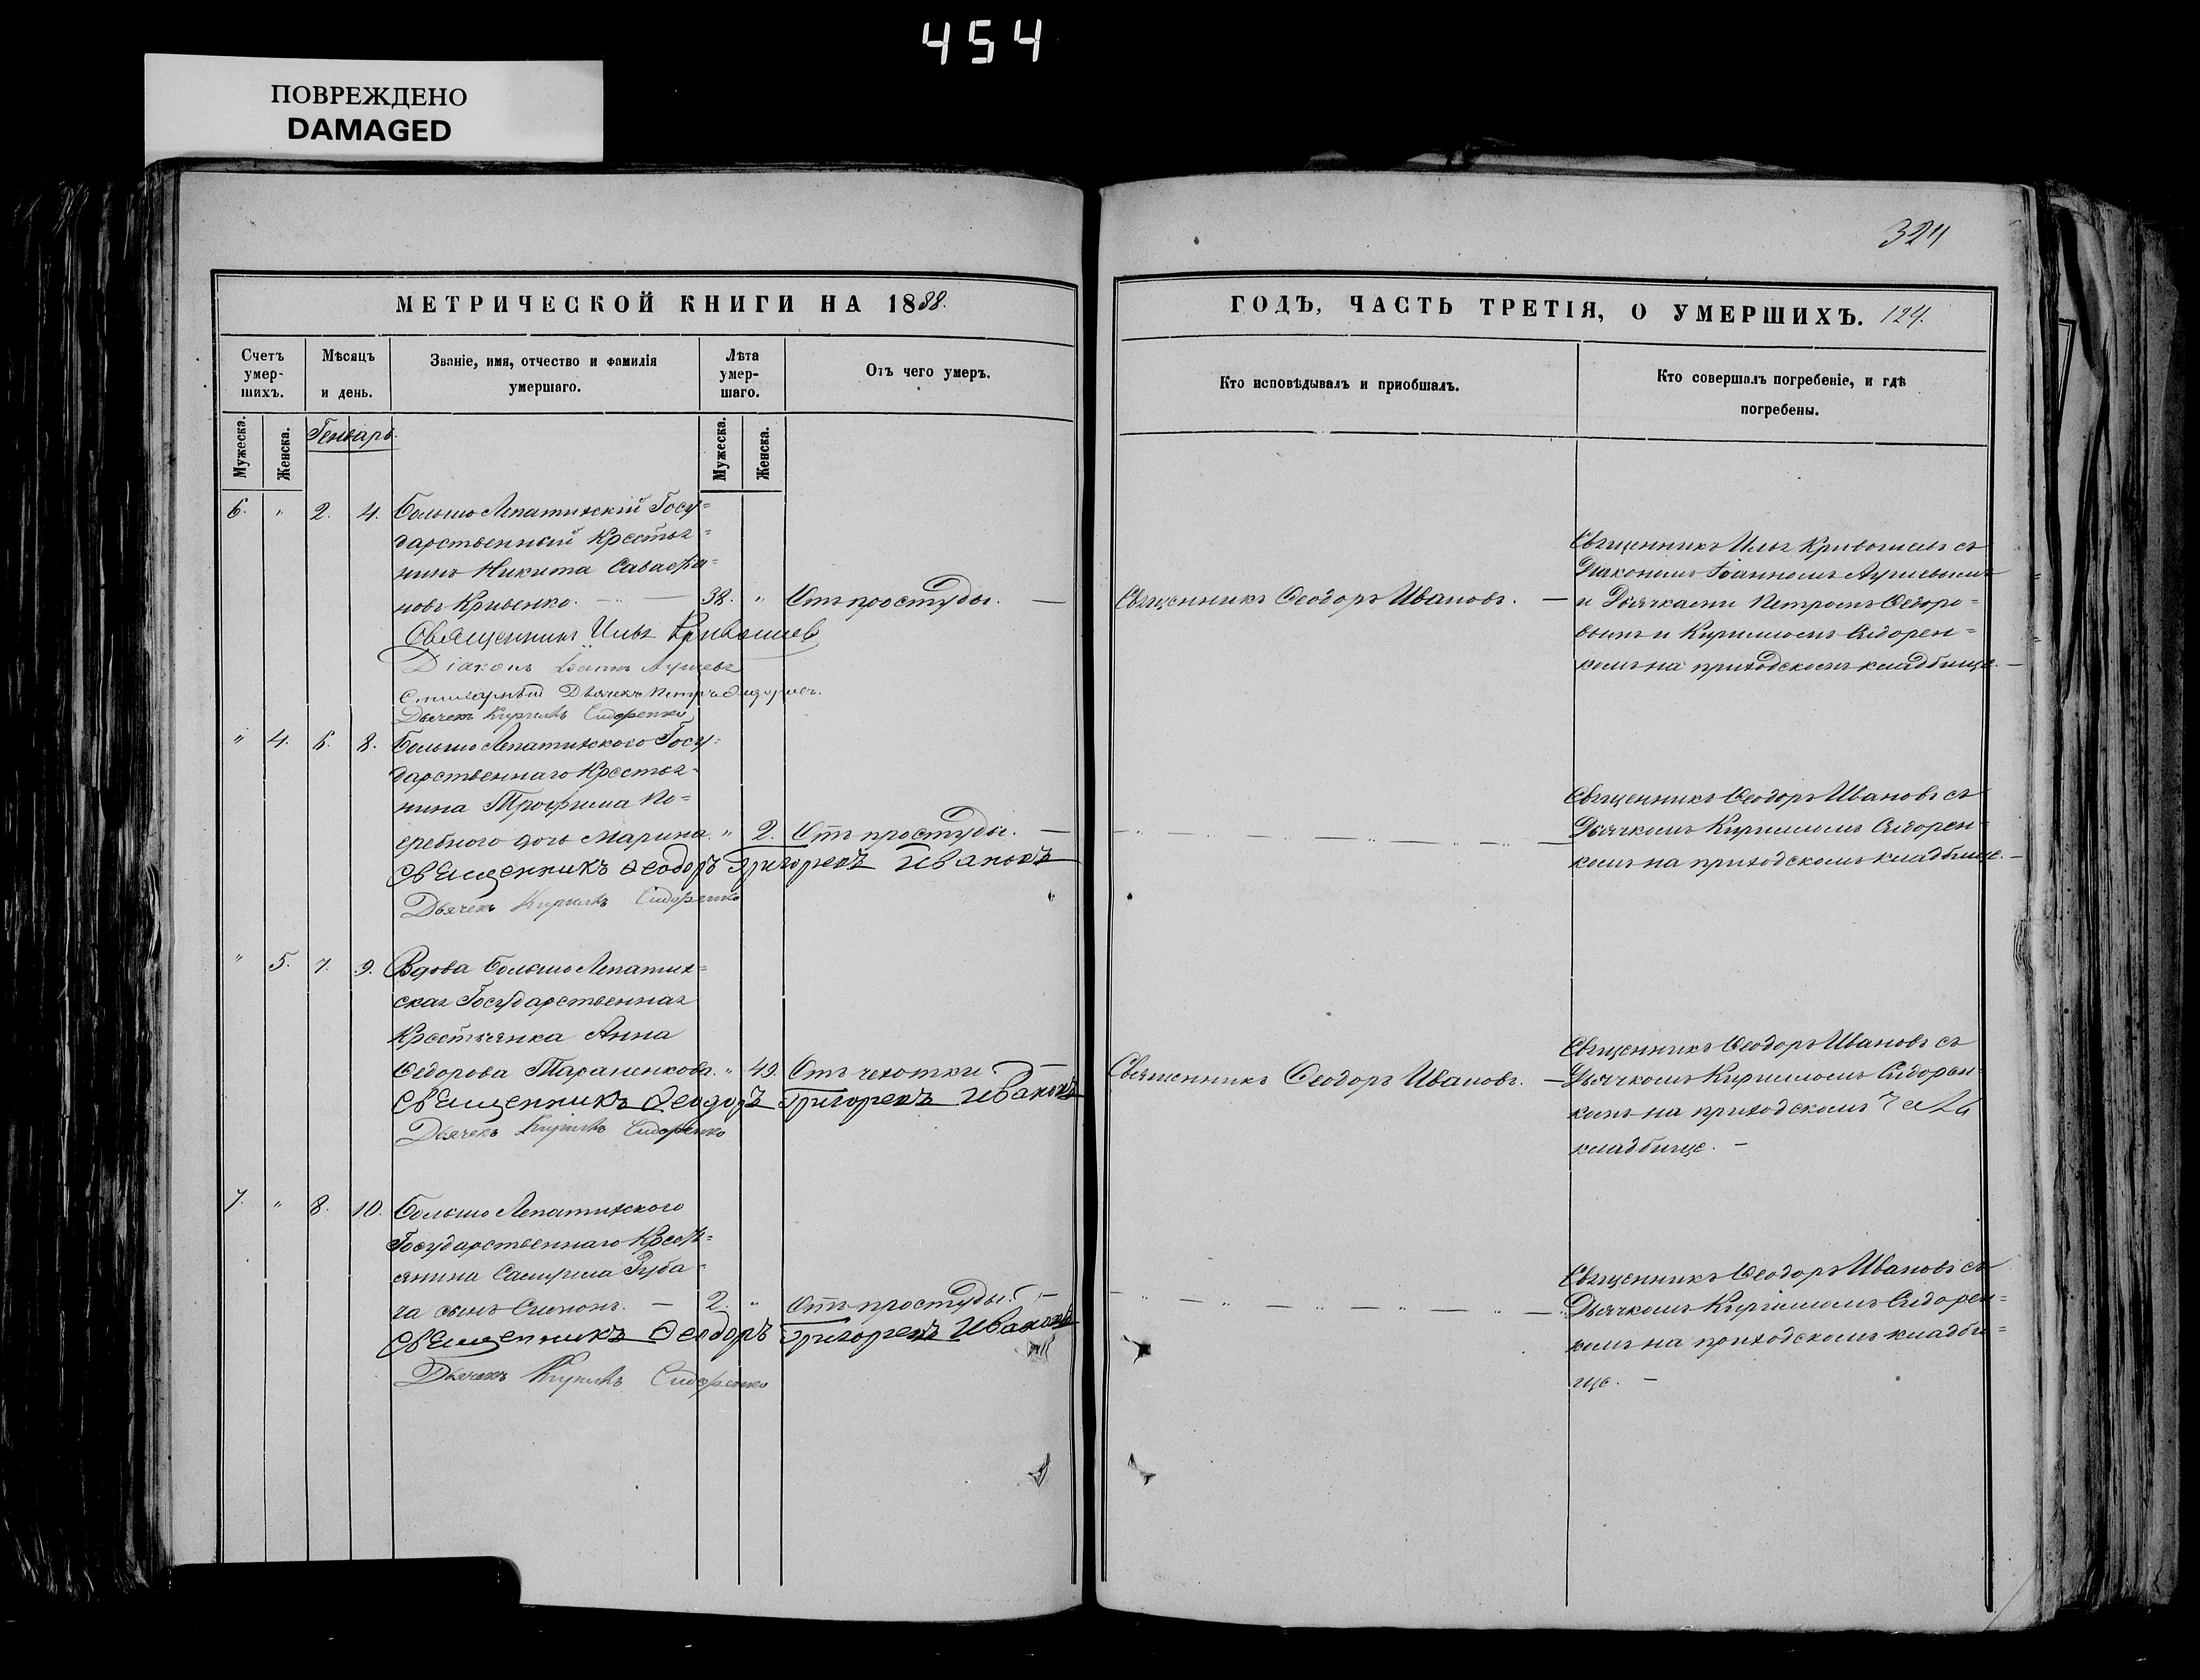 454
ПОВРЕЖДЕНО
DAMAGED
324
МЕТРИЧЕСКОЙ КНИГИ НА 1888.
ГОДЪ, ЧАСТЬ ТРЕТІЯ, О УМЕРШИХЪ. 124.
Счетъ умер-шихъ.
Мѣсяцъ и день.
Званіе, имя, отчество и фамилія умершаго.
Лѣта умер-шаго.
Отъ чего умеръ.
Кто исповѣдывалъ и пріобщалъ.
Кто совершалъ погребеніе, и гдѣ погребены.
Мужеска.
Женска.
Генварь.
Мужеска.
Женска.
6. " 2. 4. Больше Лепатихскій Госу=
дарственный Крестья=
нинъ Никита
новъ Кривенко. — 38. " Отъ простуды. —
Священникъ Илья Кривошеев
Діаконъ Іоаннъ
Дьячекъ Петръ
Дьячекъ Кирилъ Сидоренко
Священникъ Ѳеодоръ Ивановъ. —
Священникъ Илья Кривошеевъ съ
Діакономъ Іоанномъ
и Дьячками Петромъ Ѳедоро=
вымъ и Кирилломъ Сидорен=
комъ на приходскомъ кладбище. —
" 4. 6. 8. Больше Лепатихского Госу=
дарственнаго Крестья=
нина Трофима По=
гребного дочь Марина. " 2. Отъ простуды. —
Священникъ Ѳеодоръ Григоревъ Ивановъ
Дьячекъ Кирилъ Сидоренко
Священникъ Ѳеодоръ Ивановъ съ
Дьячкомъ Кирилломъ Сидорен=
комъ на приходскомъ кладбище. —
" 5. 7. 9. Вдова Больше Лепатих=
ская Государственная
Крестьянка Анна
Ѳедорова Тараненкова. " 49. Отъ чахотки —
Священникъ Ѳеодоръ Григоревъ Ивановъ
Дьячекъ Кирилъ Сидоренко
Священникъ Ѳеодоръ Ивановъ. —
Священникъ Ѳеодоръ Ивановъ съ
Дьячкомъ Кирилломъ Сидорен=
комъ на приходскомъ
кладбище. —
7. " 8. 10. Больше Лепатихского
Государственнаго Крест=
янина Руба=
ча сынъ Симонъ. — 2. " Отъ простуды. —
Священникъ Ѳеодоръ Григоревъ Ивановъ
Дьячекъ Кирилъ Сидоренко
Священникъ Ѳеодоръ Ивановъ съ
Дьячкомъ Кирилломъ Сидорен=
комъ на приходскомъ кладби=
ще. —